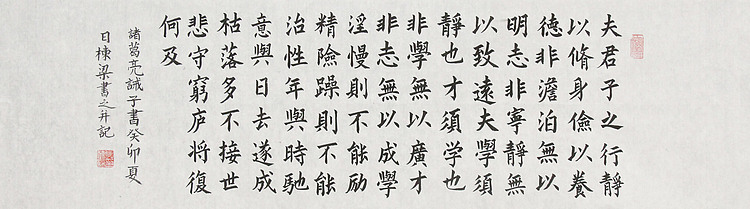 夫君子之行靜
以脩身儉以養
德非澹泊無以
明志非寧靜無
以致遠夫學須
靜也才須学也
非學無以廣才
非志無以成學
淫慢則不能励
精險躁則不能
治性年與時馳
意與日去遂成
枯落多不接世
悲守窮庐将復
何及
諸葛亮誡子書癸卯夏
日棟梁書之并記